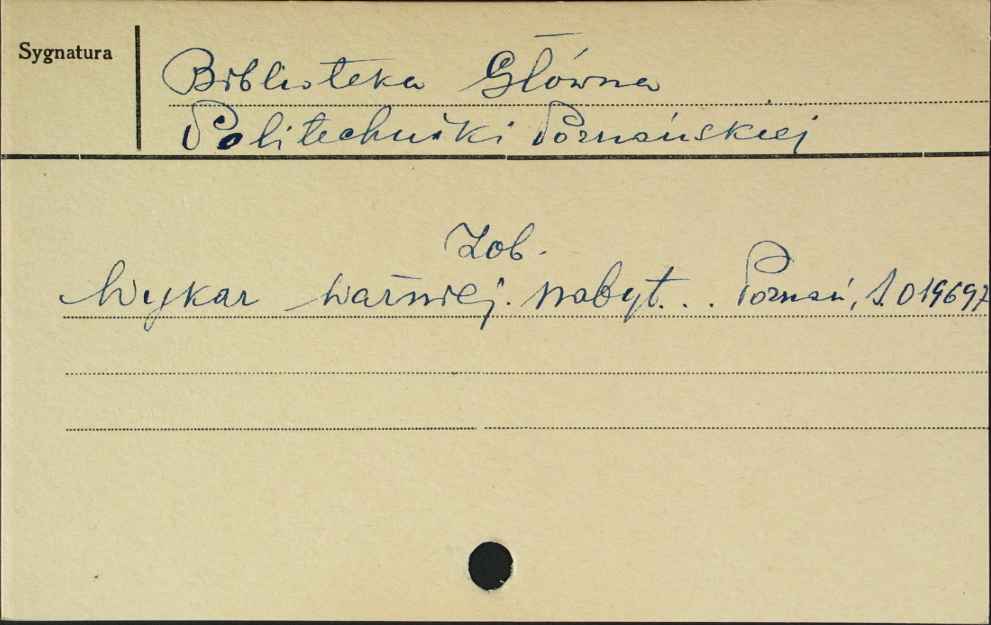 Sygnatura
Biblioteka Główna
Politechniki Poznańskiej
Zob.
Wykaz ważniej. nabyt... Poznań, S.019697